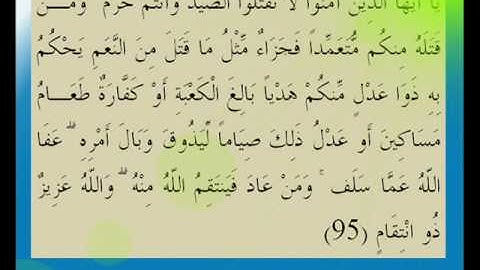 يَا أَيُّهَا الَّذِينَ آمَنُوا لَا تَقْتُلُوا الصَّيْدَ وَأَنْتُمْ حُرُمٌ وَمَــنْ
قَتَلَهُ مِنكُم مُّتَعَمِّداً فَجَزَاءٌ مِّثْلُ مَا قَتَلَ مِنَ النَّعَمِ يَحْكُمُ
بِهِ ذَوَا عَدْلٍ مِّنكُمْ هَدْياً بَالِغَ الْكَعْبَةِ أَوْ كَفَّارَةٌ طَعَــامُ
مَسَاكِينَ أَو عَدْلُ ذَلِكَ صِيَاماً لِّيَذُوقَ وَبَالَ أَمْرِهِ ۗ عَفَا
اللَّهُ عَمَّا سَلَف ۚ وَمَنْ عَادَ فَيَنتَقِمُ اللَّهُ مِنْهُ ۗ وَاللَّهُ عَزِيزٌ
ذُو انْتِقَامٍ (95)